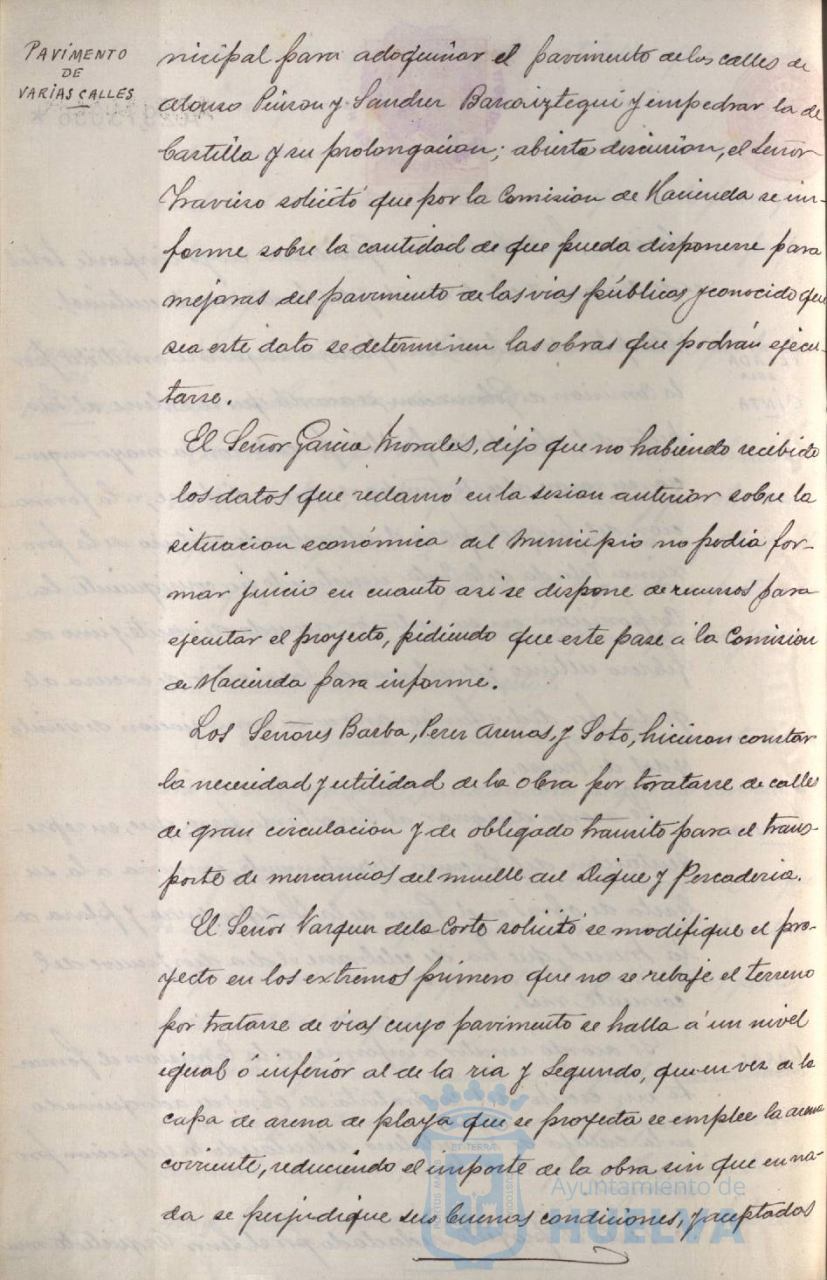 PAVIMENTO
DE
VARIAS CALLES
nicipal para adoquinar el pavimento de las calles de
Alonso Pinzon y Sanchez Barcaiztegui y empedrar la de
Castilla y su prolongacion; abierta discusion, el Señor
Travieso solicitó que por la Comision de Hacienda se in-
forme sobre la cantidad de que pueda disponerse para
mejoras del pavimento de las vias públicas y conocido que
sea este dato se determinen las obras que podrán ejecu-
tarse.
El Señor Garcia Morales, dijo que no habiendo recibido
los datos que reclamó en la sesion anterior sobre la
situacion económica del Municipio no podia for-
mar juicio en cuanto a si se dispone de recursos para
ejecutar el proyecto, pidiendo que este pase á la Comision
de Hacienda para informe.
Los Señores Barba, Perez Arenas, y Soto, hicieron constar
la necesidad y utilidad de la obra por toratarse de calles
de gran circulacion y de obligado transito para el trans-
porte de mercancias del muelle del Dique y Pescaderia.
El Señor Vazquez de la Corte solicitó se modifique el pro-
yecto en los extremos primero que no se rebaje el terreno
por tratarse de vias cuyo pavimento se halla á un nivel
igual ó inferior al de la ria y Segundo, que en vez de la
capa de arena de playa que se proyecta se emplee la arena
corriente, reduciendo el importe de la obra sin que en na-
da se perjudique sus buenas condiciones, y aceptadas
Ayuntamiento de
HUELVA